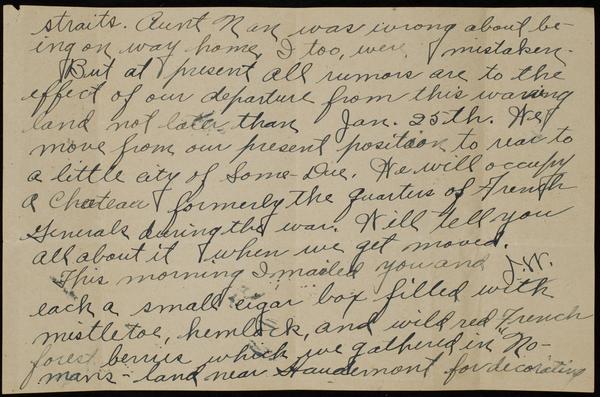 straits. Aunt Nan was wrong about be-
ing on way home, I too, were mistaken.
But at present all rumors are to the
effect of our departure from this waring
land not later than Jan. 25th. We
move from our present position to rear to
a little city of Some-Due. We will occupy
a Chateau formerly the quarters of French
Generals during the war. Will tell you
all about it when we get moved.
This morning I mailed you and J.W.
each a small cigar box filled with
mistletoe, hemlock, and wild red French
forest berries which we gathered in "No-
mans-land near Haudemont for decorating